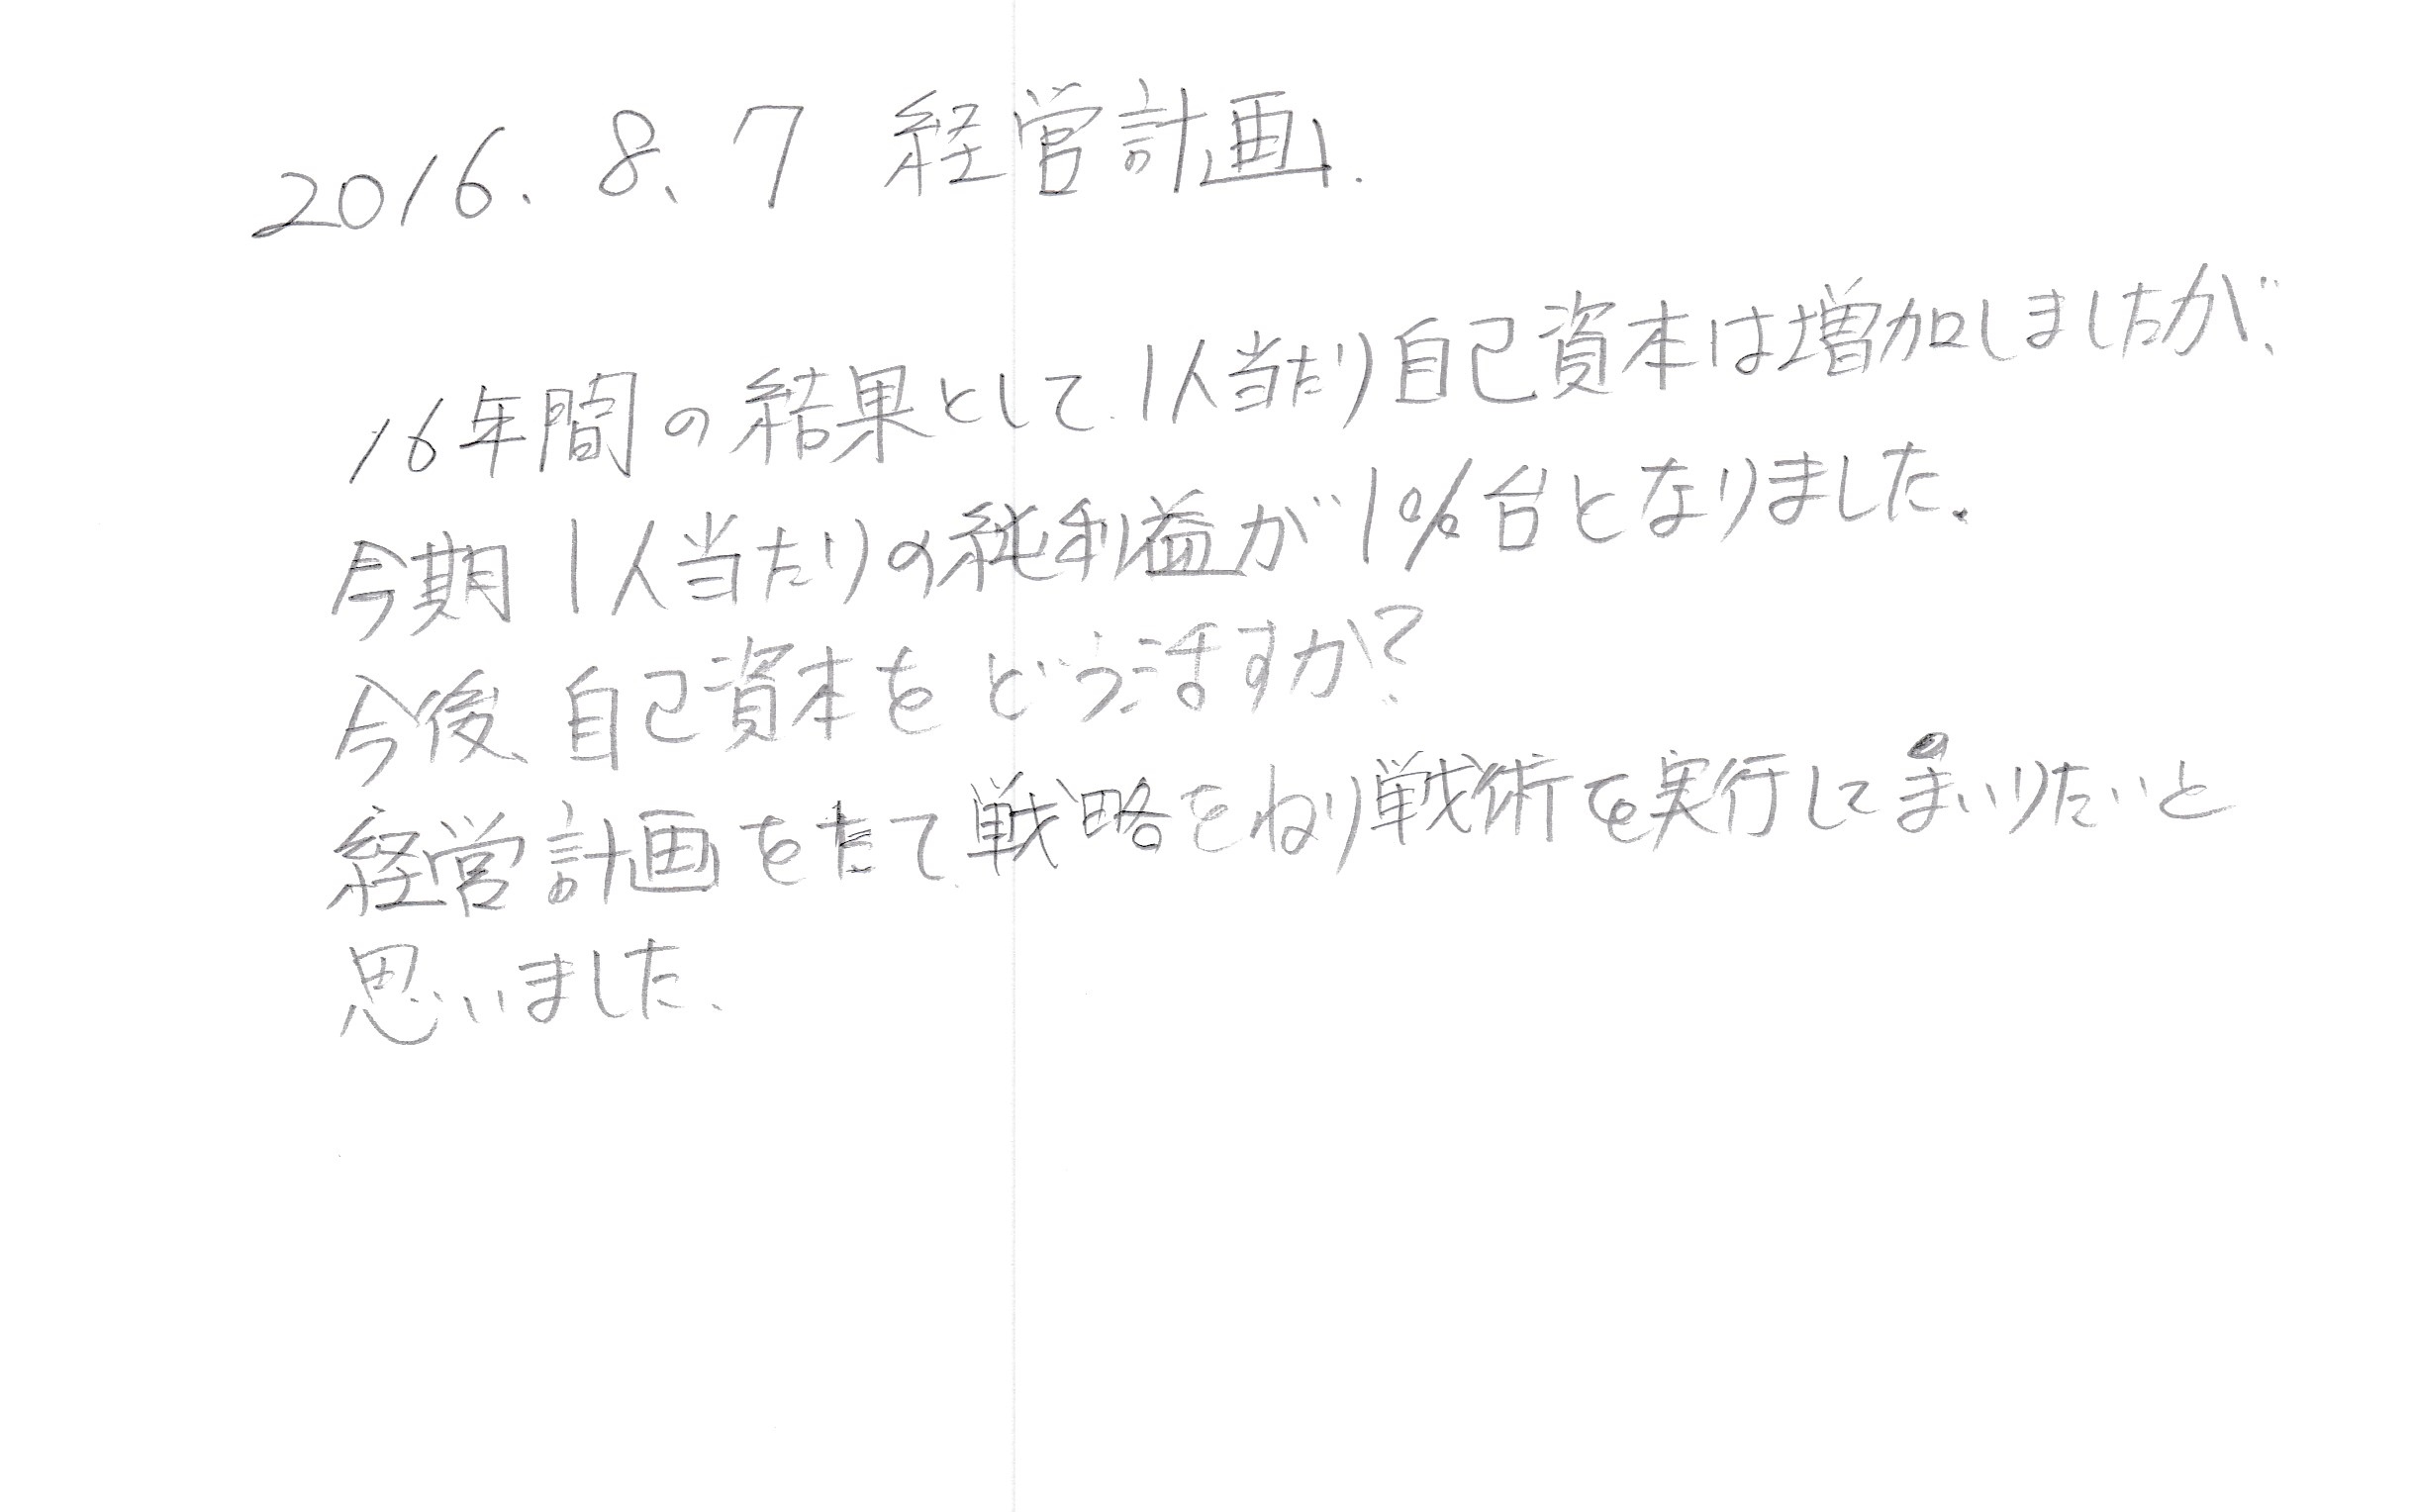 2016. 8、7 経営計画.
16年間の結果として、1人当たり自己資本は増加しましたが、
今期1人当たりの純利益が1%台となりました.
今後、自己資本をどう活すか?
経営計画をたて、戦略をねり戦術を実行してまいりたいと
思いました、